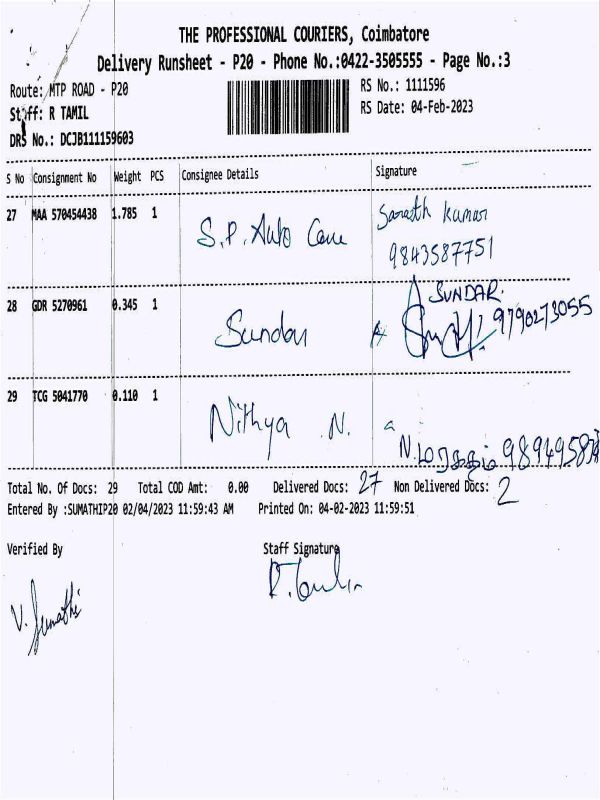 THE PROFESSIONAL COURIERS, Coimbatore
Delivery Runsheet - P20 - Phone No.:0422-3505555 - Page No.:3
Route: MTP ROAD - P20
RS No.: 1111596
Staff: R TAMIL
RS Date: 04-Feb-2023
DRS No.: DCJB111159603
S No Consignment No Weight PCS Consignee Details Signature
27 MAA 570454438 1.785 1 S.P. Auto Care Sarath Kumar
9843587751
28 GDR 5270961 0.345 1 Sundar SUNDAR.
9790273055
29 TCG 5041770 0.110 1 Nithya N.
N.
Total No. Of Docs: 29 Total COD Amt: 0.00 Delivered Docs: 27 Non Delivered Docs: 2
Entered By :SUMATHIP20 02/04/2023 11:59:43 AM Printed On: 04-02-2023 11:59:51
Verified By Staff Signature
V. Sumathi